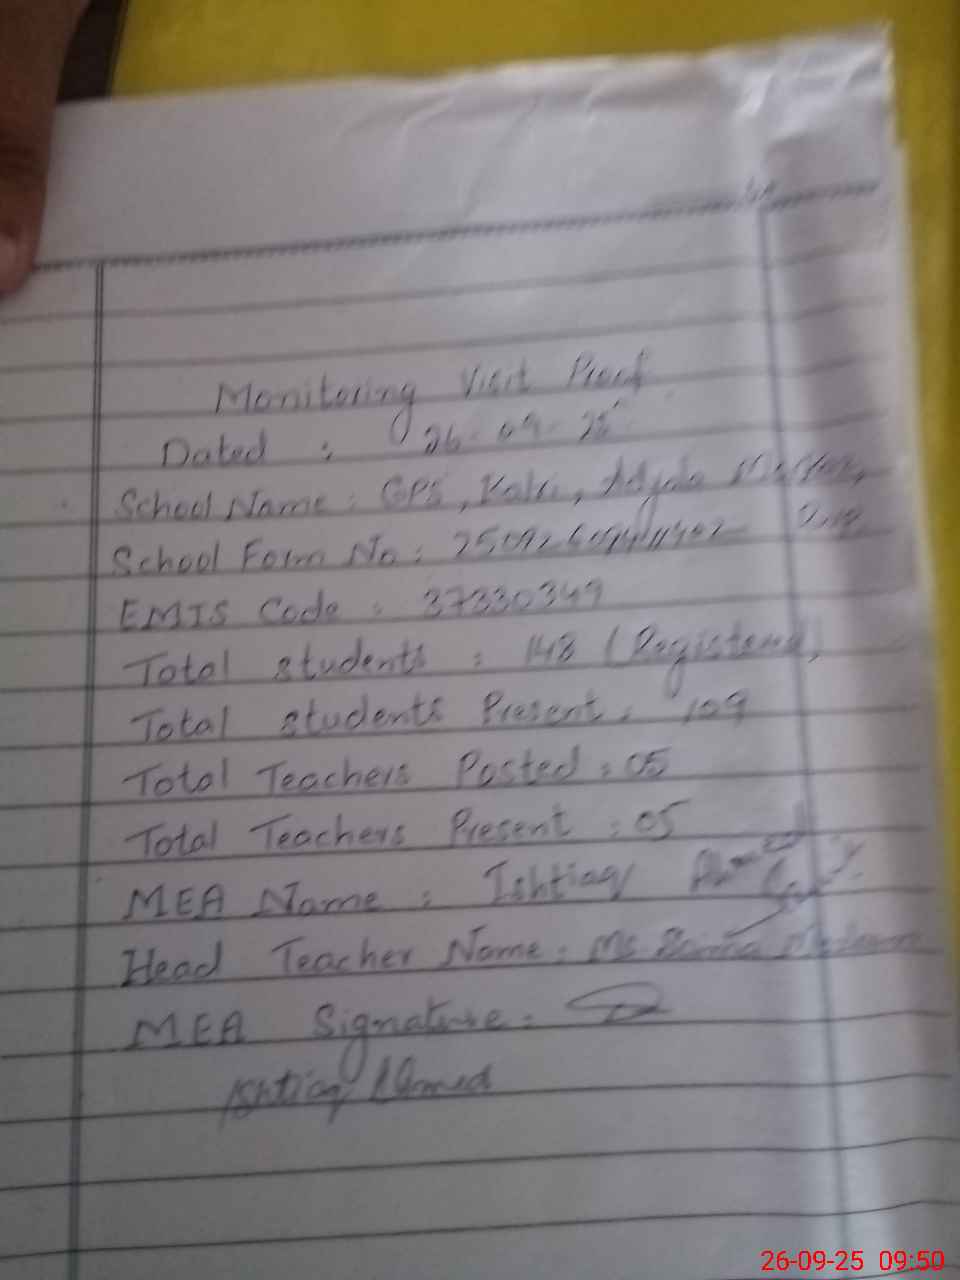 Monitoring Visit Proof
Dated : 26-09-25
School Name : GPS, Kalri,
School Form No :
EMIS Code : 37330349
Total students : 148 (Registered)
Total students Present : 109
Total Teachers Posted : 05
Total Teachers Present : 05
MEA Name : Ishtiaq Ahmed
Head Teacher Name : Ms
MEA Signature :
Ishtiaq Ahmed
26-09-25 09:50